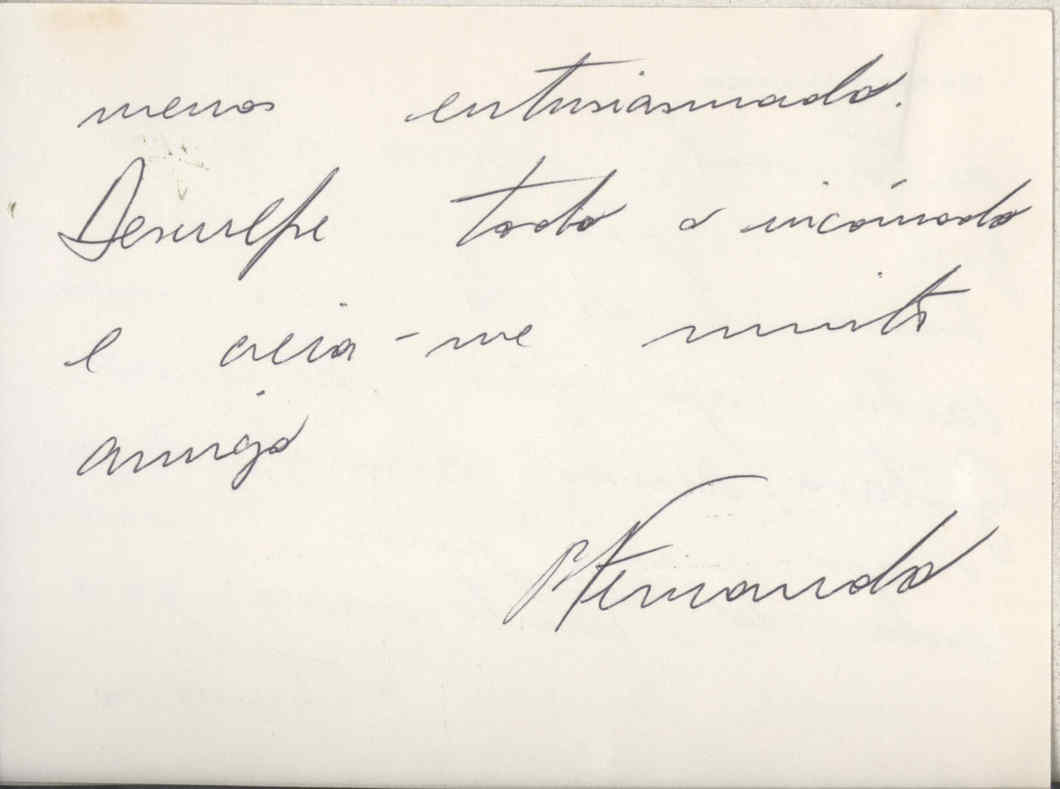 menos entusiasmado.
Desculpe todo o incómodo
e creia-me muito
amigo
Fernando